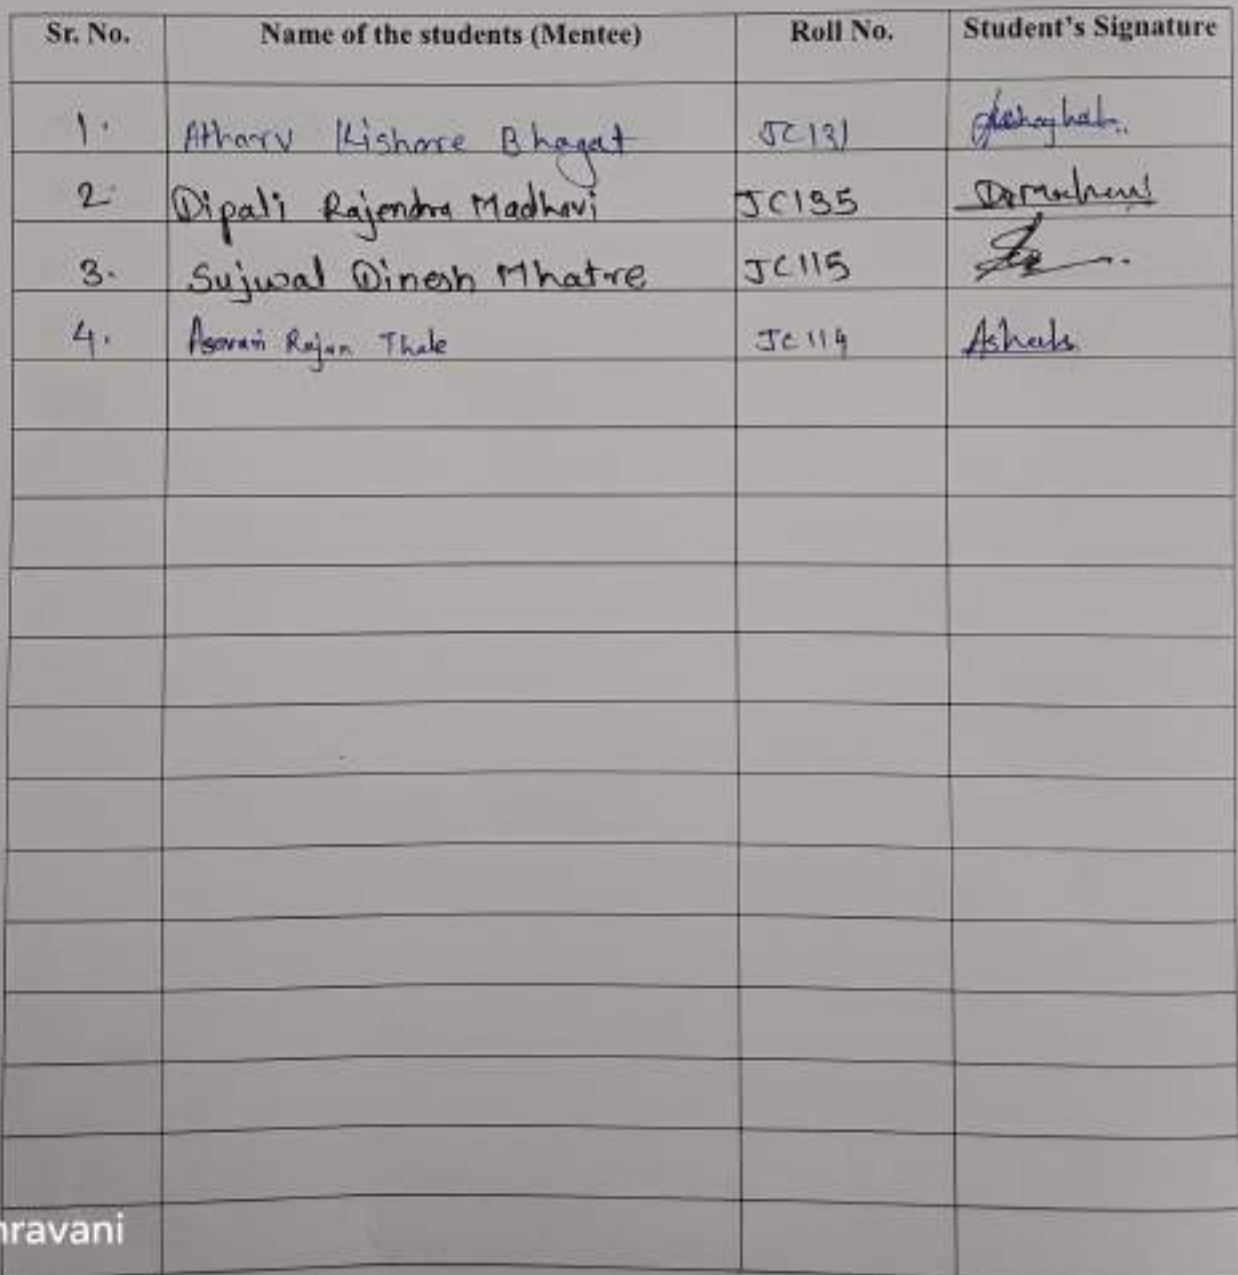 Sr. No. Name of the students (Mentee) Roll No. Student's Signature
1. Atharv Kishore Bhagat JC131
2. Dipali Rajendra Madhavi JC135
3. Sujwal Dinesh Mhatre JC115
4. Rajan Thale JC114
hravani